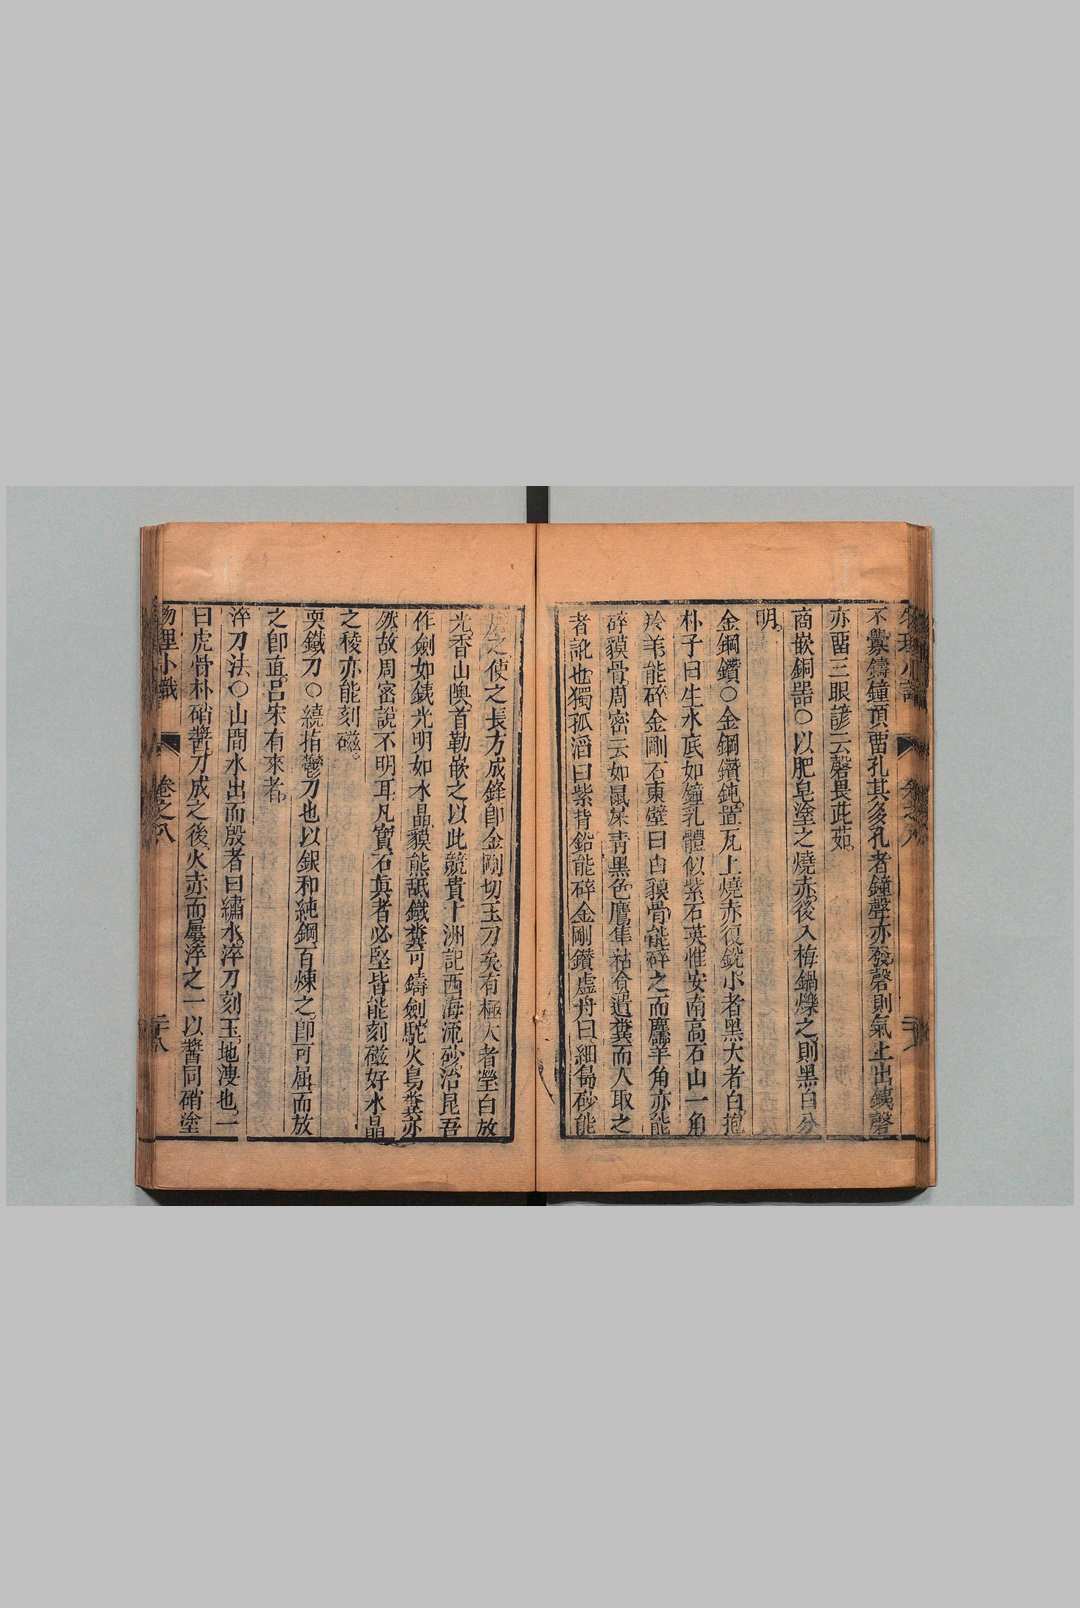 不釁鑄鐘頂畱孔其多孔者鐘聲亦發磬則氣上出鐵磬
亦畱三眼諺云磬畏此茹。
商嵌銅器○以肥皂塗之燒赤後入梅鍋爍之則黑白分
明。
金鋼鑽○金鋼鑽鈍置瓦上燒赤復銳小者黑大者白抱
朴子曰生水底如鐘乳體似紫石英惟安南高石山一角
羚羊能碎金剛石東壁曰白貘骨能碎之而麢羊角亦能
碎貘骨周密云如鼠屎青黑色鷹隼枯食遺糞而人取之
者訛也獨孤滔曰紫背鉛能碎金剛鑽虛舟曰細島砂能
之使之長方成鋒卽金剛切玉刀矣有極大者瑩白放
光香山䙾首勒嵌之以此競貴十洲記西海流砂治昆吾
作劍如鐵光明如水晶貘熊舐鐵糞可鑄劍駝火鳥糞亦
然故周密說不明耳凡寶石眞者必堅皆能刻磁好水晶
之稜亦能刻磁。
耎鐵刀○繞指鬱刀也以銀和純鋼百煉之卽可屈而放
之卽直。呂宋有來者。
淬刀法○山間水出而殷者曰繡水淬刀刻玉地溲也一
曰虎骨朴硝醬刀成之後火赤而屢淬之一以醬同硝塗
物理小識 卷之八 二十八